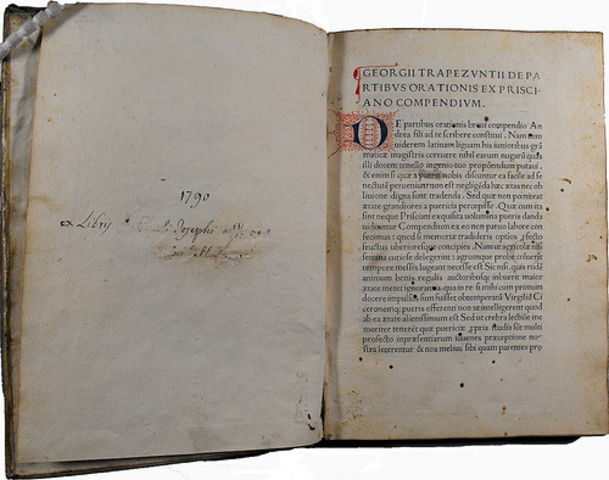 1790
ex Libris Josephi
GEORGII TRAPEZVNTII DE PA
RTIBVS ORATIONIS EX PRISCI
ANO COMPENDIVM.
DE partibus orationis breui compendio An
drea fili ad te scribere constitui. Nam cum
uiderem latinam liguam his iunioribus grā
maticæ magistris corruere nihil earum nugarū quas
illi docent tenello ingenio tuo propōendum putaui
& enim si quæ a pueris nobis discuntur ea facile ad se
nectutē perueniunt non est negligēda hæc ætas nec ob
liuione digna sunt tradenda. Sed quæ non pœniteat
ætate grandiores a puericia percepisse. Quæ cum ita
sint neque Prisciani exquisita uolumina pueris danda
uiderentur Compendium ex eo non paruo labore con
fecimus : quod si memoriæ tradideris optios
fructus uberioresque concipies. Nam ut agricolæ nisi
semina cutiose delegerint : agrumque probe coluerit
tempore messis lugeant necesse est Sic nisi quis rude
animum benis regulis auctoribusque inbuerit maiore
ætate metet ignorantia. qua in re si mihi cum primum
docere impulsus sum fuisset obtemperatū Virgiliū Ci
ceronemq; pueris offerenti non utintelligerent quod
ab ea ætate alienissimum est Sed ut crebra lectiōe me
moriter tenerēt quæ puericiæ ppria studia sūt multi
profecto inpræsentiarum iuuenes præceptione no
stra leterentur & nos melius sibi quam parentes pro